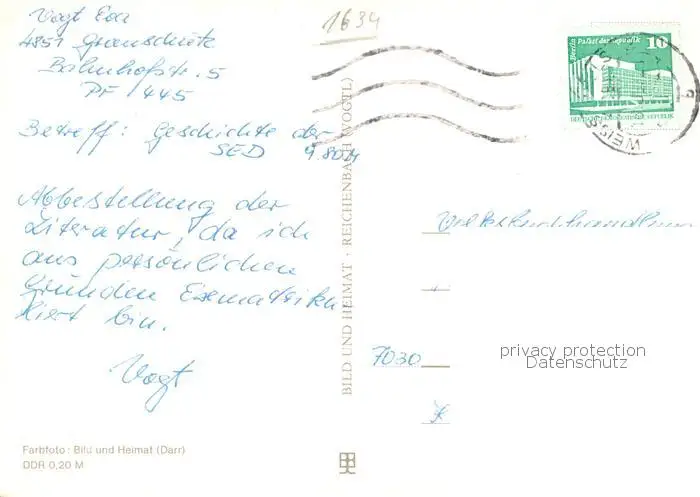 Vogt Eva
4851 Granschütz
Bahnhofstr. 5
PF 445
Betreff: Geschichte der
SED
Abbestellung der
Literatur, da ich
aus persönlichen
Gründen Exmatriku
liert bin.
Vogt
Farbfoto: Bild und Heimat (Darr)
DDR 0,20 M
BILD UND HEIMAT · REICHENBACH (VOGTL)
1634
Berlin Palast der Republik
10
DEUTSCHE DEMOKRATISCHE REPUBLIK
Volksbuchhandlung
7030
privacy protection
Datenschutz